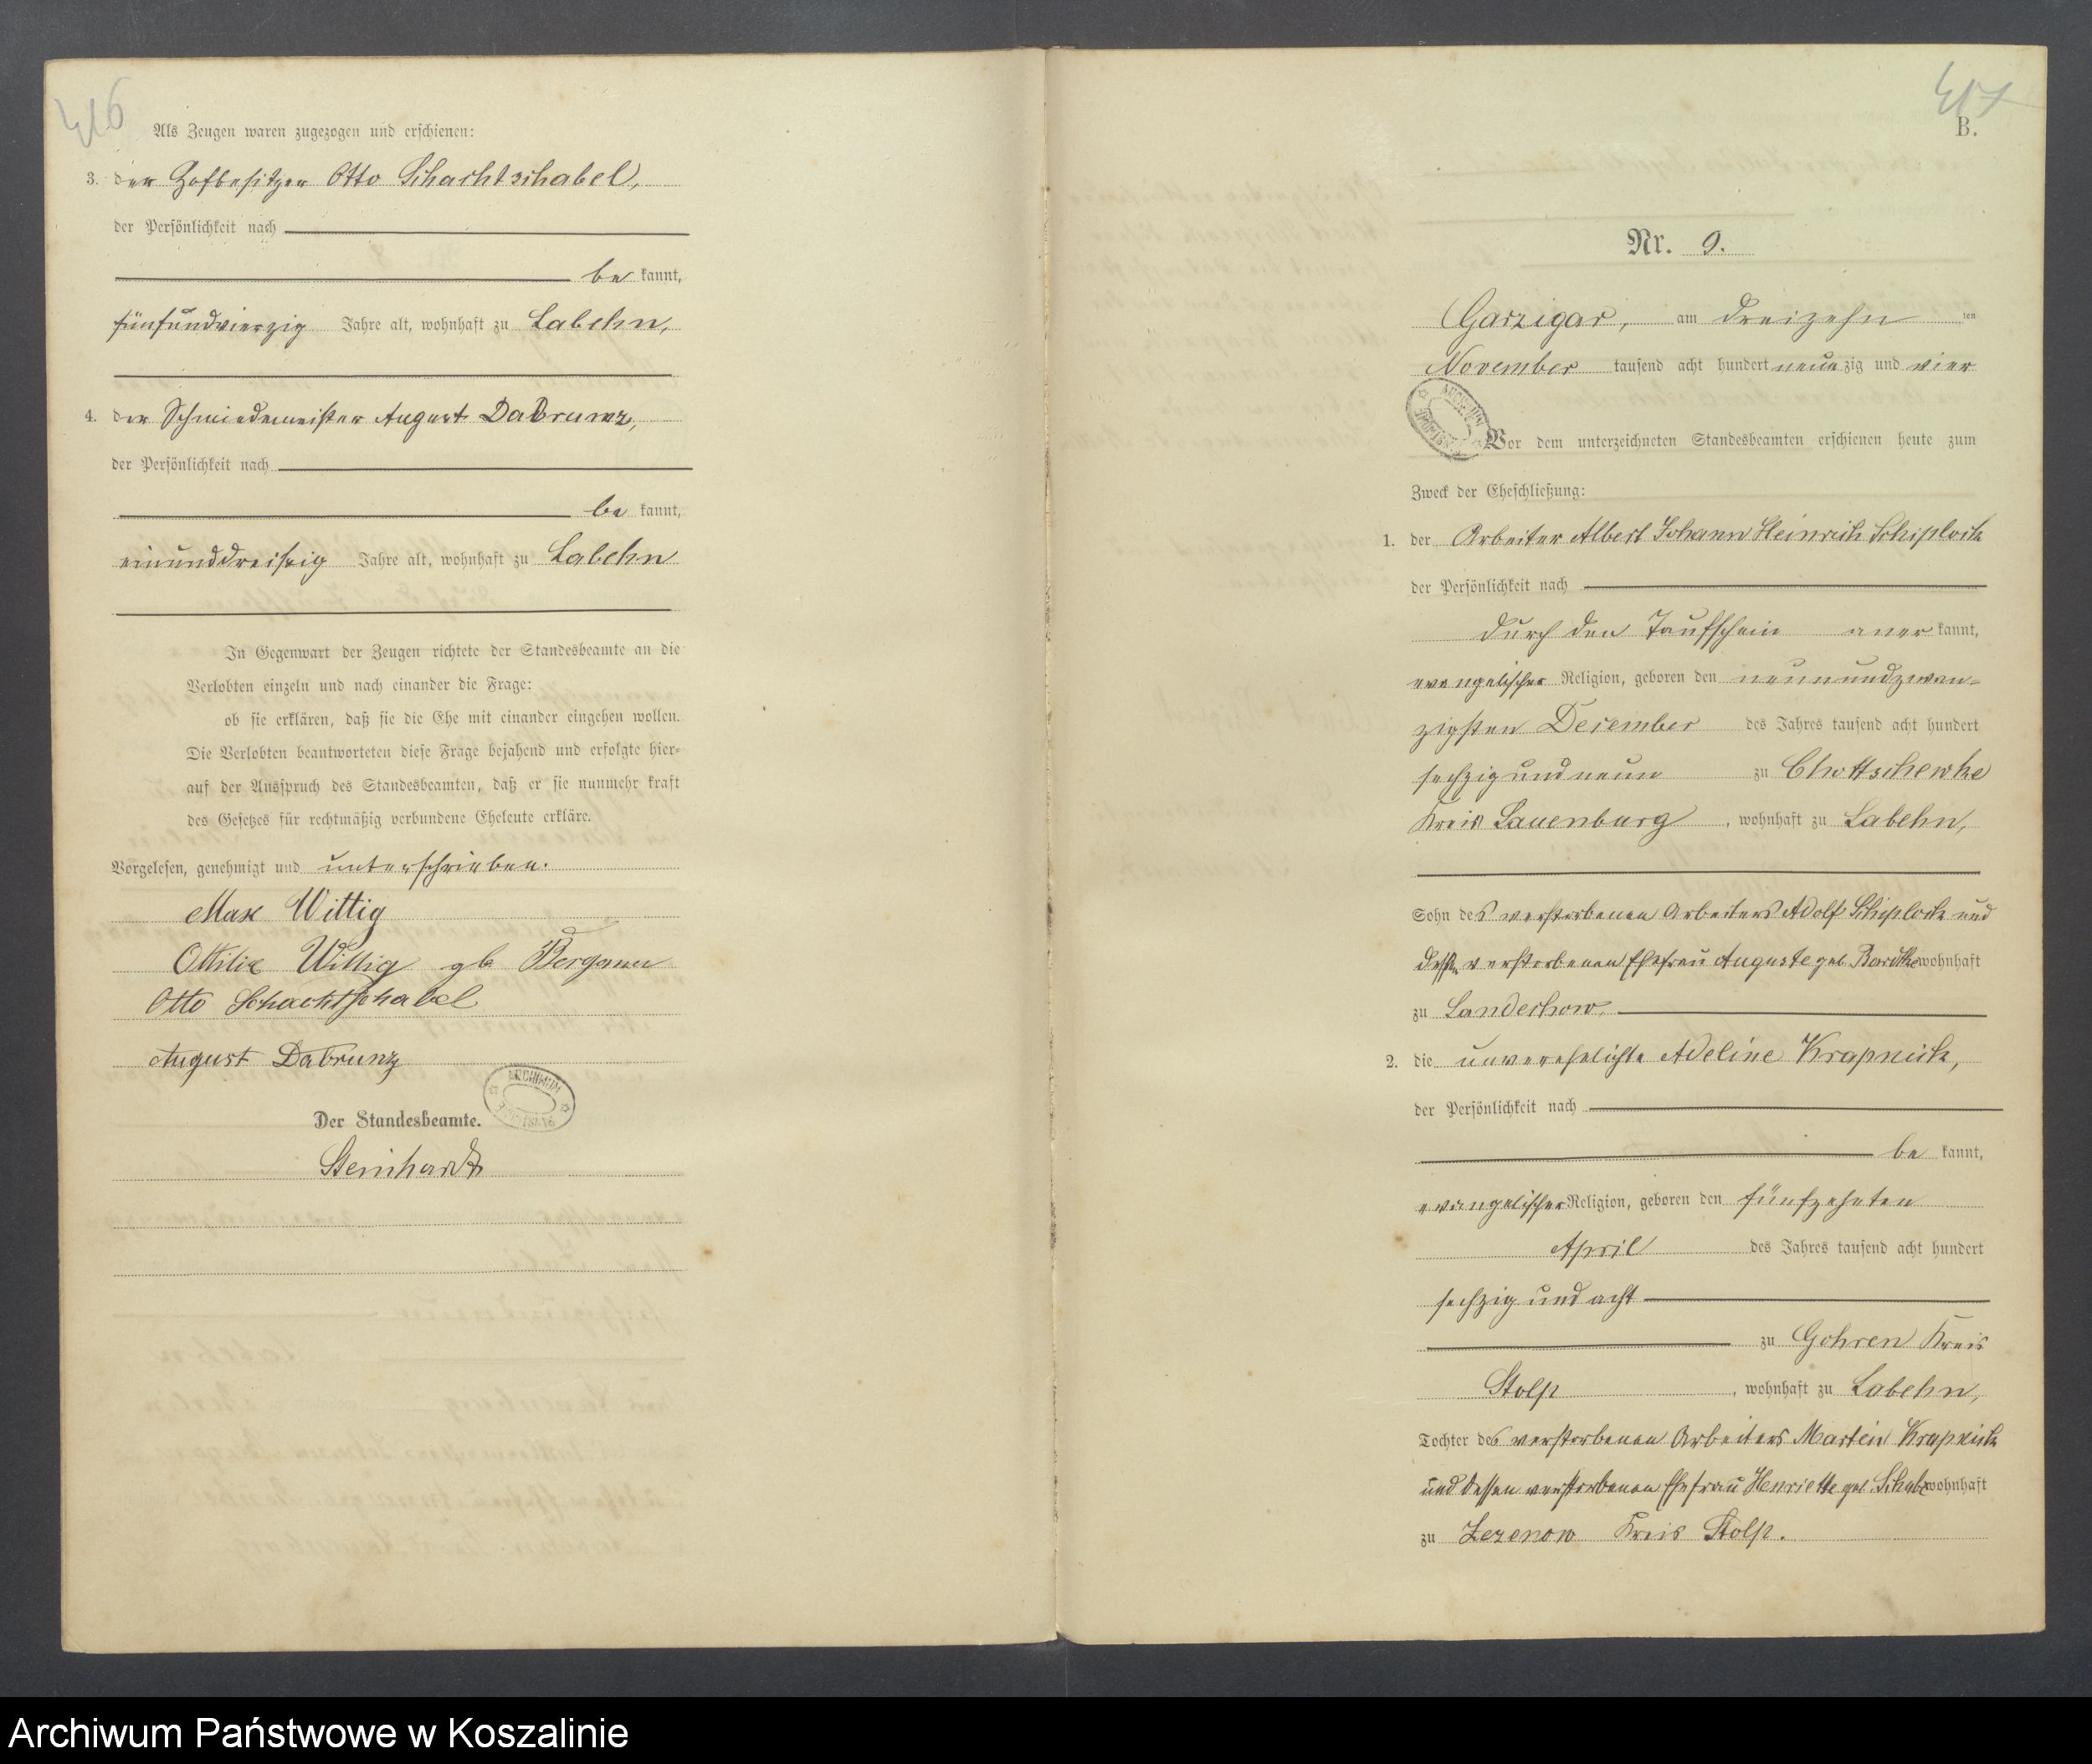 416
Als Zeugen waren zugezogen und erschienen:
3. der Hofbesitzer Otto Schachtschabel,
der Persönlichkeit nach
be kannt,
fünfundvierzig Jahre alt, wohnhaft zu Labehn,
4. der Schmiedemeister August Dabrunz,
der Persönlichkeit nach
be kannt,
einunddreißig Jahre alt, wohnhaft zu Labehn
In Gegenwart der Zeugen richtete der Standesbeamte an die
Verlobten einzeln und nach einander die Frage:
ob sie erklären, daß sie die Ehe mit einander eingehen wollen.
Die Verlobten beantworteten diese Frage bejahend und erfolgte hier-
auf der Ausspruch des Standesbeamten, daß er sie nunmehr kraft
des Gesetzes für rechtmäßig verbundene Eheleute erkläre.
Vorgelesen, genehmigt und unterschrieben.
Max Wittig
Ottilie Wittig gb Bergann
Otto Schachtschabel
August Dabrunz
Der Standesbeamte.
Steinhardt
417
B.
Nr. 9.
Garzigar, am dreizehn ten
November tausend acht hundert neunzig und vier
Vor dem unterzeichneten Standesbeamten erschienen heute zum
Zweck der Eheschließung:
1. der Arbeiter Albert Johann Heinrich Schiplock
der Persönlichkeit nach
durch den Taufschein aner kannt,
evangelischer Religion, geboren den neunundzwan-
zigsten December des Jahres tausend acht hundert
sechzig und neun zu Chottschewke
Kreis Lauenburg, wohnhaft zu Labehn,
Sohn des verstorbenen Arbeiters Adolf Schiplock und
dessen verstorbenen Ehefrau Auguste geb. Bardtke wohnhaft
zu Landechow,
2. die unverehelichte Adeline Krapnick,
der Persönlichkeit nach
be kannt,
evangelischer Religion, geboren den fünfzehnten
April des Jahres tausend acht hundert
sechzig und acht
zu Gohren Kreis
Stolp, wohnhaft zu Labehn,
Tochter des verstorbenen Arbeiters Martin Krapnick
und dessen verstorbenen Ehefrau Henriette geb. Schabe wohnhaft
zu Zezenow Kreis Stolp.
Archiwum Państwowe w Koszalinie